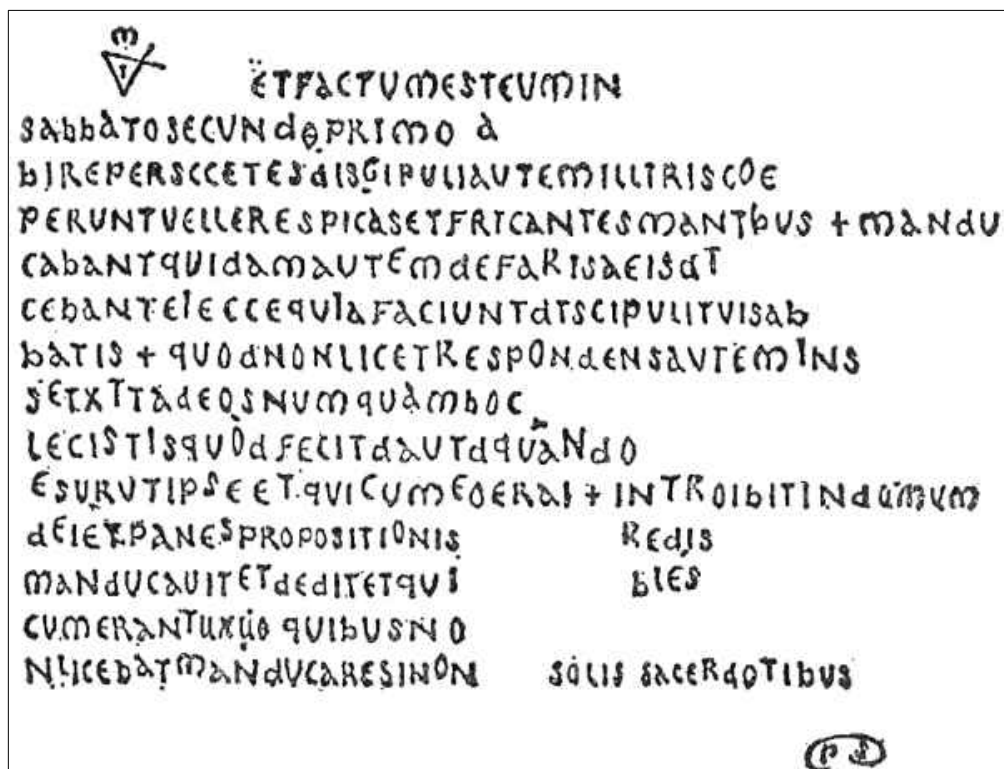 M
T
ETFACTUMESTEUMIN
SAbbATOSECUNdOPRIMO A
bIREPERSCCETESdISGIPULIAUTEMILLTRISCOE
PERUNTUELLERESPICASETFRTCANTESMANTbUS + MANdU
CAbANTQUIdAMAUTEMdEFARISAEISdT
CEbANTEIECCEQUIAFACIUNTdTSCIPULITVISAb
bATIS + QUOdNONLICETRESPONdENSAUTEMINS
SETXTTAdEOSNUMQUAMbOC
LECISTISQUOdFECITdAUTdQUANdO
ESURUTIPSEETQUICUMEOERAI + INTROIbITINdUMUM
dEIEXPANESPROPOSITIONIS REdIS
MANdUCAUITETdEdITETQUI bLES
CUMERANTUXUO QUIbUSNO
NLICEbATMANdUCARESINON SOLIS SACERdOTIbUS
PS